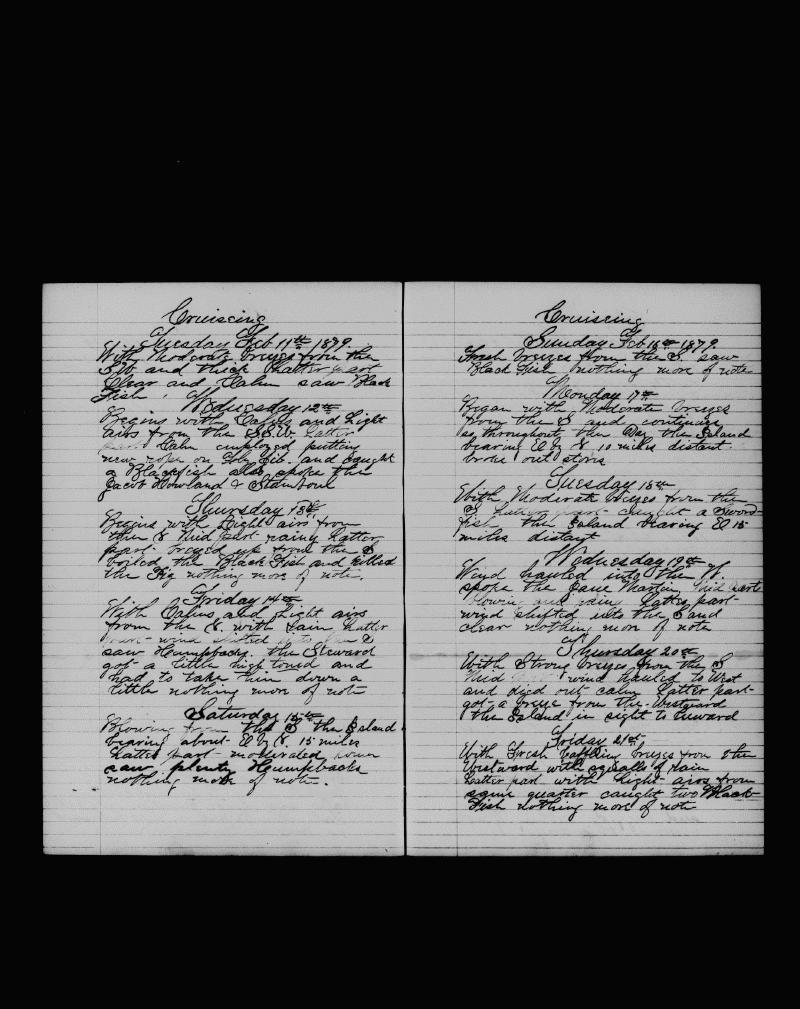 Cruiseing
Tuesday Feb 11th 1879
With Moderate breezes from the
SW and thick Latter part
Clear and Calm saw Black
Fish
Wednesday 12th
Begins with Calms and Light
airs from the S.S.W. Latter
part Calm employed putting
new rope on Jib. and Caught
a Blackfish also spoke the
Jacob Howland & Stamboul
Thursday 13th
Begins with Light airs from
the S Mid part rainy Latter
part breezed up from the S
boiled the Black Fish and killed
the Pig nothing more of note.
Friday 14th
With Calms and Light airs
from the S. with rain Latter
part wind shifted
saw Humpbacks. the Steward
got a little high toned and
had to take him down a
little nothing more of note
Saturday 15th
Blowing from the S the Island
bearing about E by S. 15 miles
Latter part moderated some
saw plenty Humpbacks
nothing more of note.
Cruiseing
Sunday Feb 16th 1879
Fresh breezes from the S. saw
Black Fish nothing more of note
Monday 17th
Began with Moderate breezes
from the S and continues
so throughout the Day the Island
bearing E by S 10 miles distant.
broke out stores
Tuesday 18th
With Moderate breezes from the
S. Latter part caught a Sword-
fish the Island bearing E 15
miles distant
Wednesday 19th
Wind hauled into the W.
spoke the Mattin Mid part
blowing and rain Latter part
wind shifted into the S and
clear nothing more of note
Thursday 20th
With Strong breezes from the S
Mid part wind hauled to West
and died out calm Latter part
got a breeze from the Westward
the Island in sight to Leeward
Friday 21st
With Fresh baffling breezes from the
Westward with squalls of rain
Latter part with Light airs from
same quarter caught two Black
Fish nothing more of note